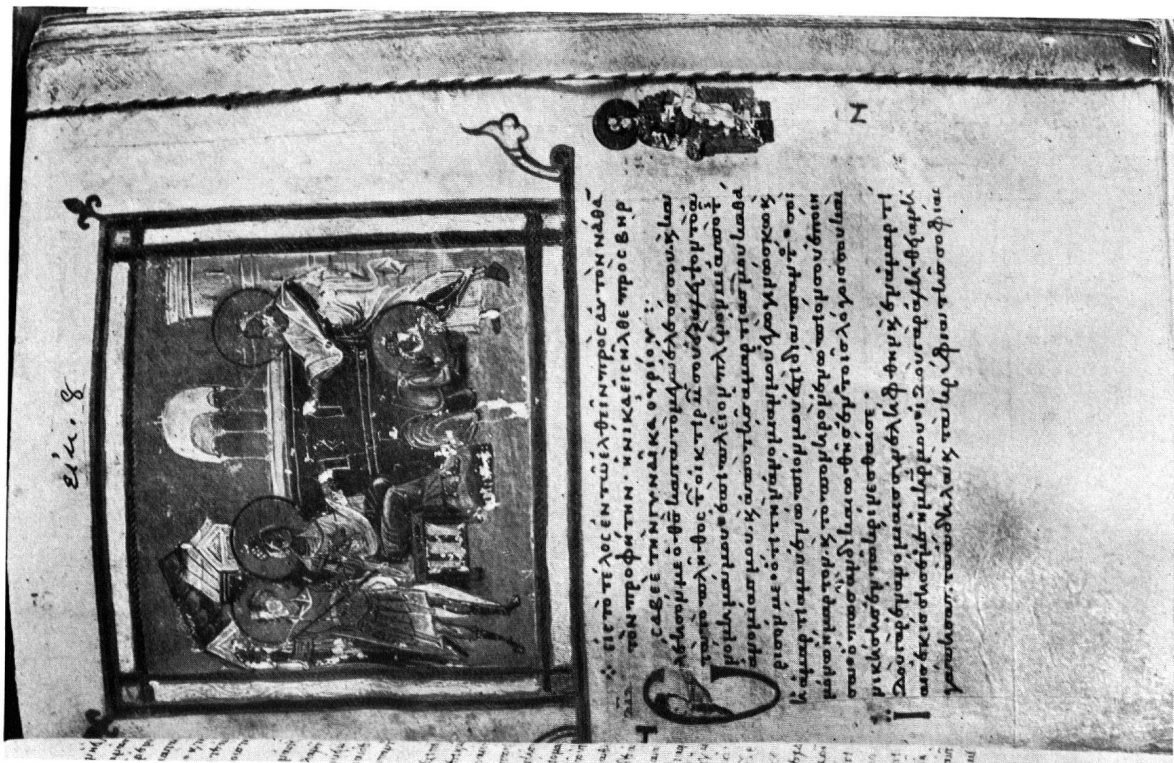 εἰκ. 8
Ν
ΕΙΣ ΤΟ ΤΕΛΟΣ ΕΝ ΤΩ ΕΛΘΕΙΝ ΠΡΟΣ ΑΥΤΟΝ ΝΑΘΑ
ΤΟΝ ΠΡΟΦΗΤΗΝ· ΗΝΙΚΑ ΕΙΣΗΛΘΕ ΠΡΟΣ ΒΗΡ
ΣΑΒΕΕ ΤΗΝ ΓΥΝΑΙΚΑ ΟΥΡΙΟΥ ::
Ἐλέησόν με ὁ θς κατὰ τὸ μέγα ἔλεος σου· καὶ κα
τὰ τὸ πλῆθος τῶν οἰκτιρμῶν σου ἐξάλειψον τὸ ἀ
νόμημά μου· ἐπὶ πλεῖον πλῦνόν με ἀπὸ τ
ἀνομίας μου καὶ ἀπὸ τῆς ἁμαρτίας μου καθά
ρισόν με· ὅτι τὴν ἀνομίαν μου ἐγὼ γινώσκω
ἡ ἁμαρτία μου ἐνώπιόν μου ἐστι διαπαντός· σοὶ
μόνῳ ἥμαρτον καὶ τὸ πονηρὸν ἐνώπιόν σου ἐποίη
σα· ὅπως ἂν δικαιωθῇς ἐν τοῖς λόγοις σου καὶ
νικήσῃς ἐν τῷ κρίνεσθαί σε·
Ἰδοὺ γὰρ ἐν ἀνομίαις συνελήφθην καὶ ἐν ἁμαρτί
αις ἐκίσσησέ με ἡ μήτηρ μου· ἰδοὺ γὰρ ἀλήθειαν
ἠγάπησας· τὰ ἄδηλα καὶ τὰ κρύφια τῆς σοφίας